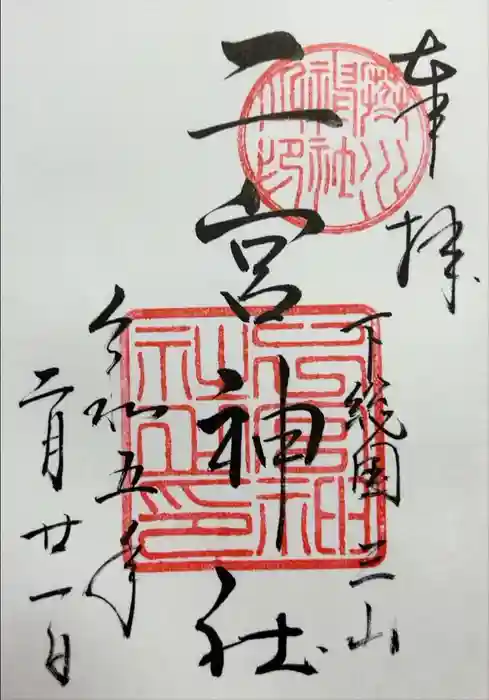 奉拝
下総国 三山
二宮神社
令和五年
二月廿一日